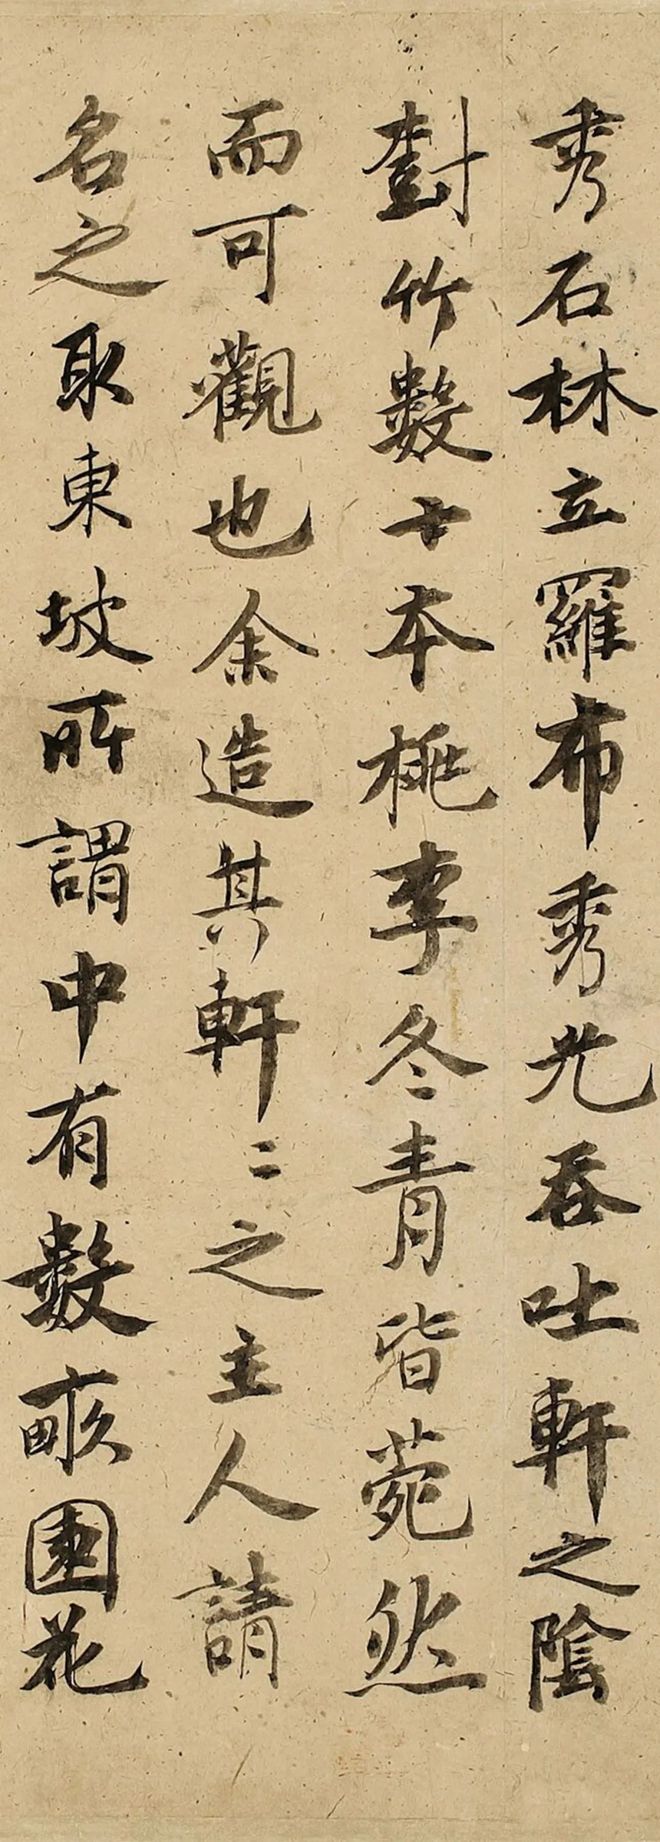 秀石林立羅布秀光吞吐軒之陰
對竹數十本桃李冬青皆菀然
而可觀也余造其軒〻之主人請
名之取東坡所謂中有數畝園花